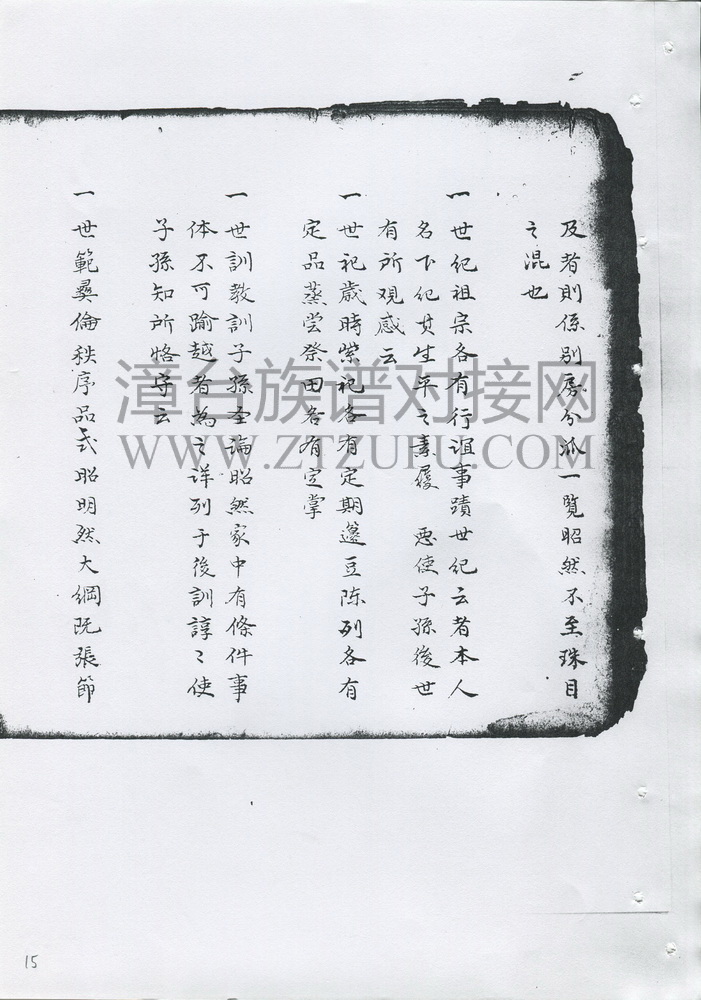 及者則係別房分派一覽昭然不至珠目
之混也
一世紀祖宗各有行誼事蹟世紀云者本人
名下纪其生平之素履 思使子孫後世
有所观感云
一世祀歲時祭祀各有定期籩豆陈列各有
定品蒸尝祭田各有定掌
一世訓教訓子孫圣論昭然家中有條件事
体不可踰越者為之详列于後訓諄〻使
子孫知所恪守云
一世範彞倫秩序品式昭明然大綱既張節
漳台族谱对接网
WWW.ZTZUPU.COM
15